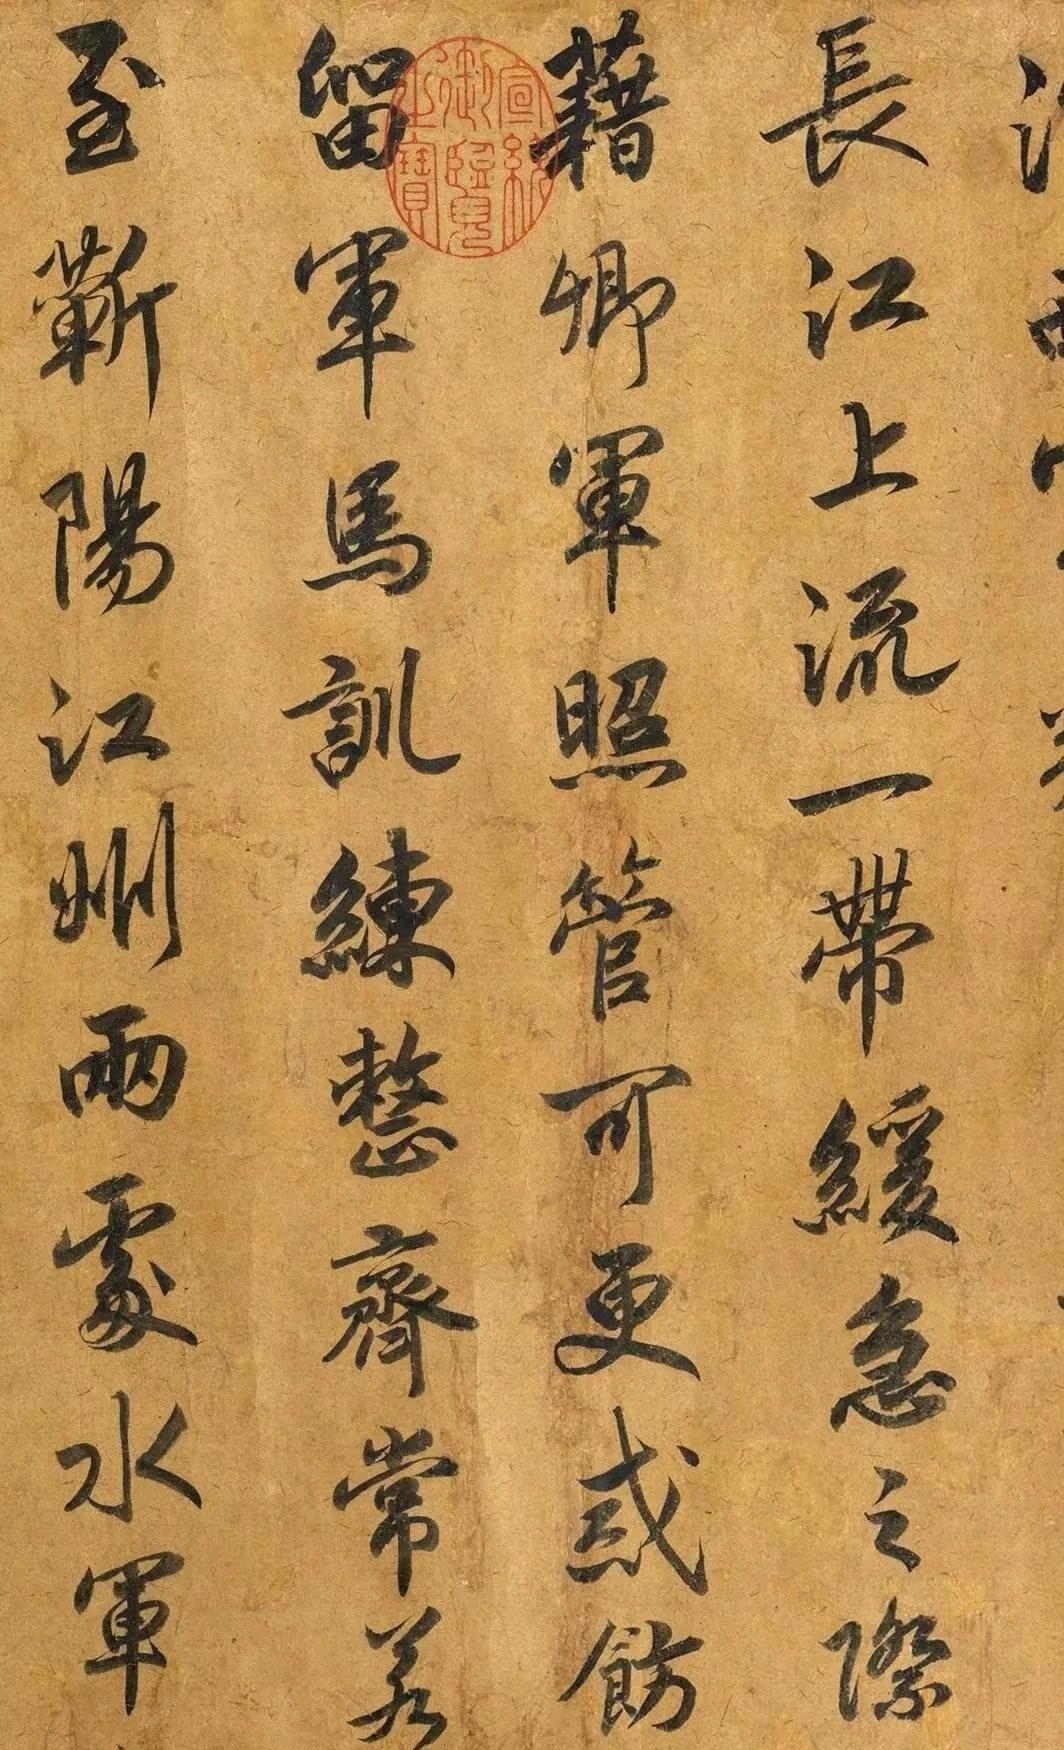 長江上流一帶緩急之際
藉卿軍照管可更戒飭
留軍馬訓練整齊常若
至蘄陽江州兩處水軍
宣統御覽之寶